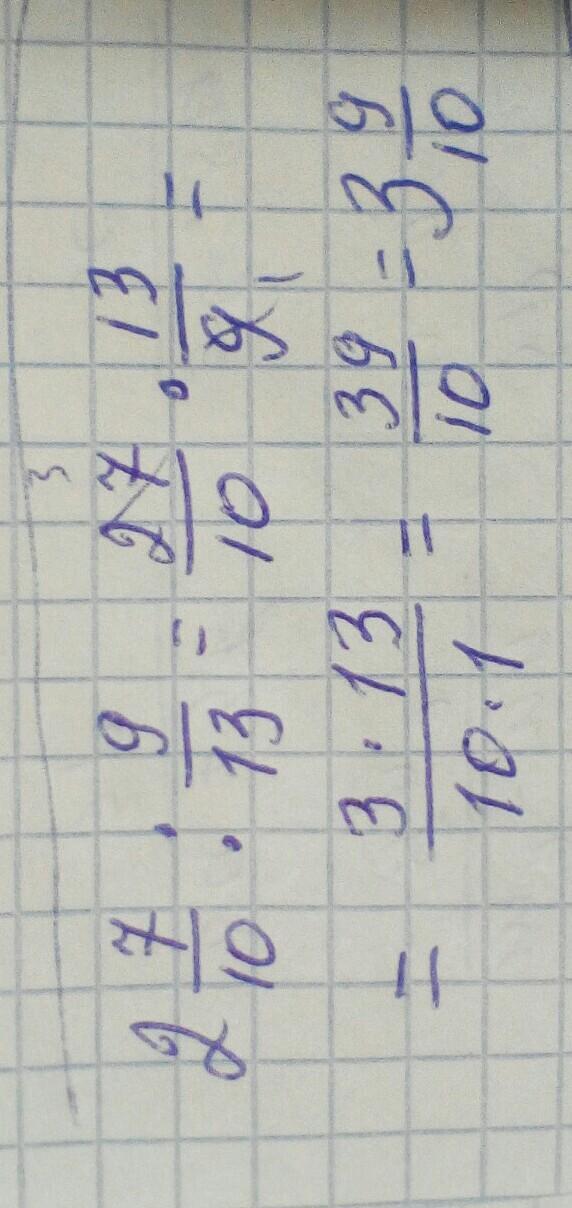 2 7/10 : 9/13 = 27/10 · 13/9 =
= 3 · 13/10 · 1 = 39/10 = 3 9/10